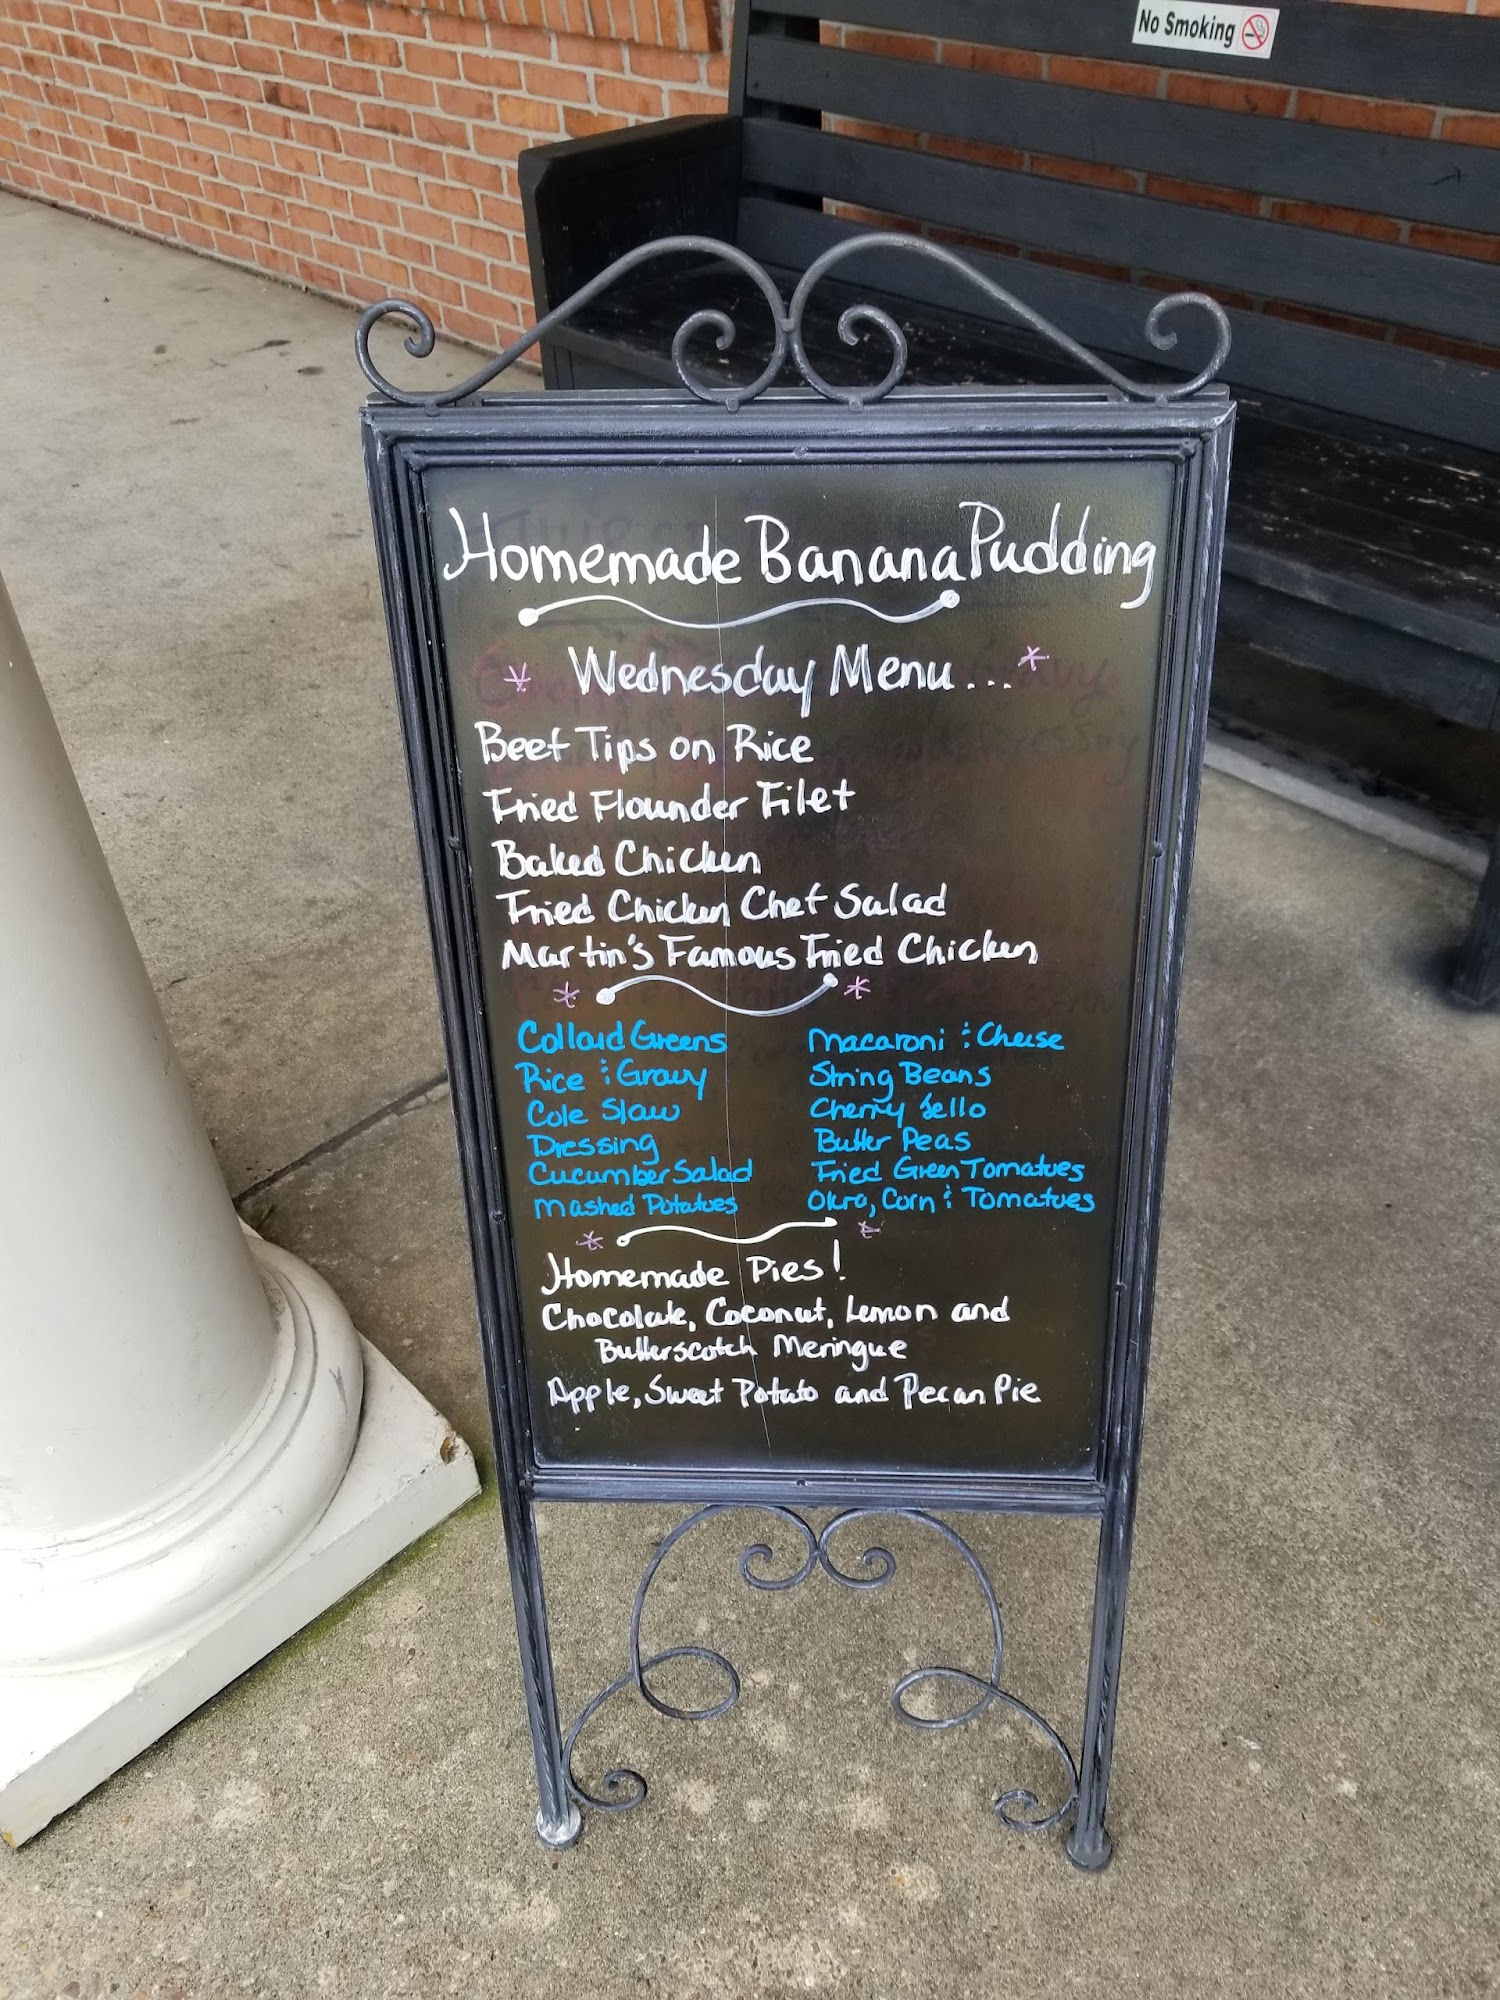 No Smoking
Homemade Banana Pudding
Wednesday Menu...
Beef Tips on Rice
Fried Flounder Filet
Baked Chicken
Fried Chicken Chef Salad
Martin's Famous Fried Chicken
Collard Greens
Rice & Gravy
Cole Slaw
Dressing
Cucumber Salad
Mashed Potatoes
Macaroni & Cheese
String Beans
Cherry Jello
Butter Peas
Fried Green Tomatoes
Okra, Corn & Tomatoes
Homemade Pies!
Chocolate, Coconut, Lemon and
Butterscotch Meringue
Apple, Sweet Potato and Pecan Pie